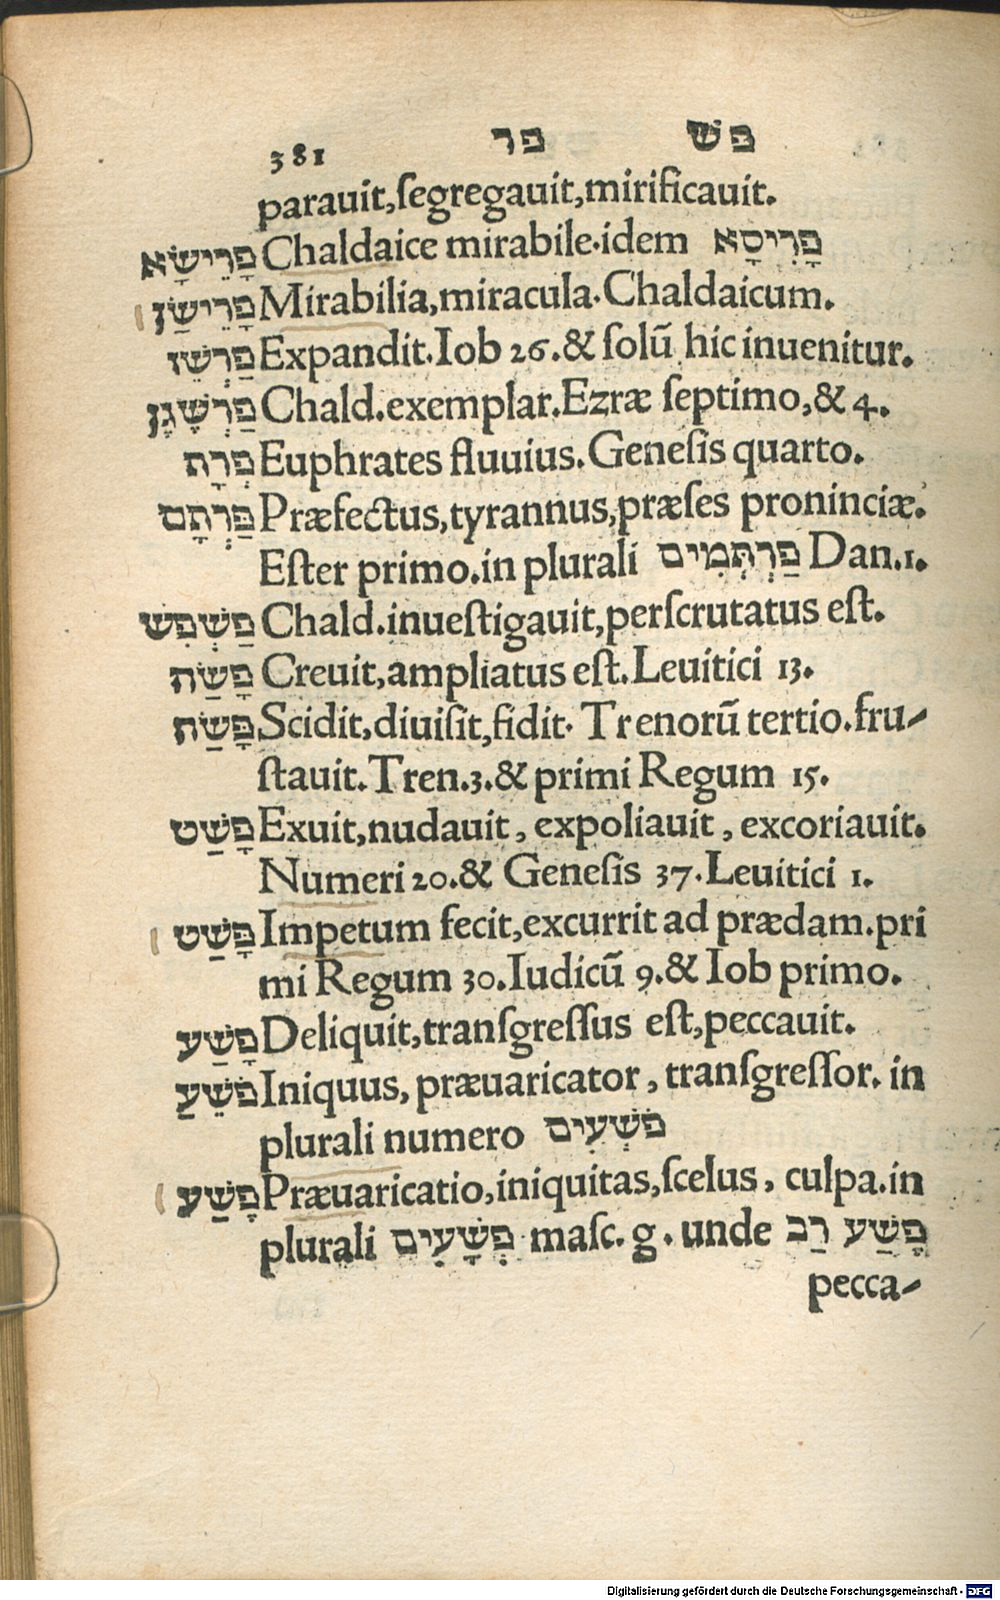 381 פר פש
parauit,ſegregauit,mirificauit.
פָרֵישָׂא Chaldaice mirabile.idem פָרִיסָא
פָרֵישַׂן Mirabilia,miracula.Chaldaicum.
פַרְשֵׁז Expandit.Iob 26.& ſolũ hic inuenitur.
פַרְשֶׁגֶן Chald.exemplar.Ezræ ſeptimo,& 4.
פְרָת Euphrates fluuius.Geneſis quarto.
פַרְתָם Præfectus,tyrannus,præſes proninciæ.
Eſter primo.in plurali פַרְתְּמִים Dan.1.
פַשְׁפִּשׁ Chald.inueſtigauit,perſcrutatus eſt.
פָשַׂה Creuit,ampliatus eſt.Leuitici 13.
פָשַׁח Scidit,diuiſit,fidit. Trenorũ tertio.fru-
ſtauit.Tren.3.& primi Regum 15.
פָשַׁט Exuit,nudauit, expoliauit, excoriauit.
Numeri 20.& Geneſis 37.Leuitici 1.
פָשַׁט Impetum fecit,excurrit ad prædam.pri
mi Regum 30.Iudicũ 9.& Iob primo.
פָשַׁע Deliquit,tranſgreſſus eſt,peccauit.
פֹשֵׁעַ Iniquus, præuaricator, tranſgreſſor. in
plurali numero פֹשְׁעִים
פֶשַׁע Præuaricatio,iniquitas,ſcelus, culpa.in
plurali פְשָׁעִים maſc. g. unde פֶשַׁע רַב
pecca-
Digitalisierung gefördert durch die Deutsche Forschungsgemeinschaft - DFG